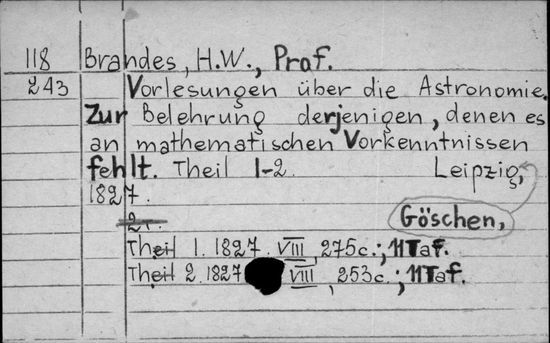 118 Brandes, H.W., Prof.
243 Vorlesungen über die Astronomie.
Zur Belehrung derjenigen, denen es
an mathematischen Vorkenntnissen
fehlt. Theil 1-2. Leipzig,
1827.
Göschen,
2т.
Theil 1. 1827. VIII, 275c.; 11Taf.
Theil 2. 1827 VIII, 253c.; 11Taf.